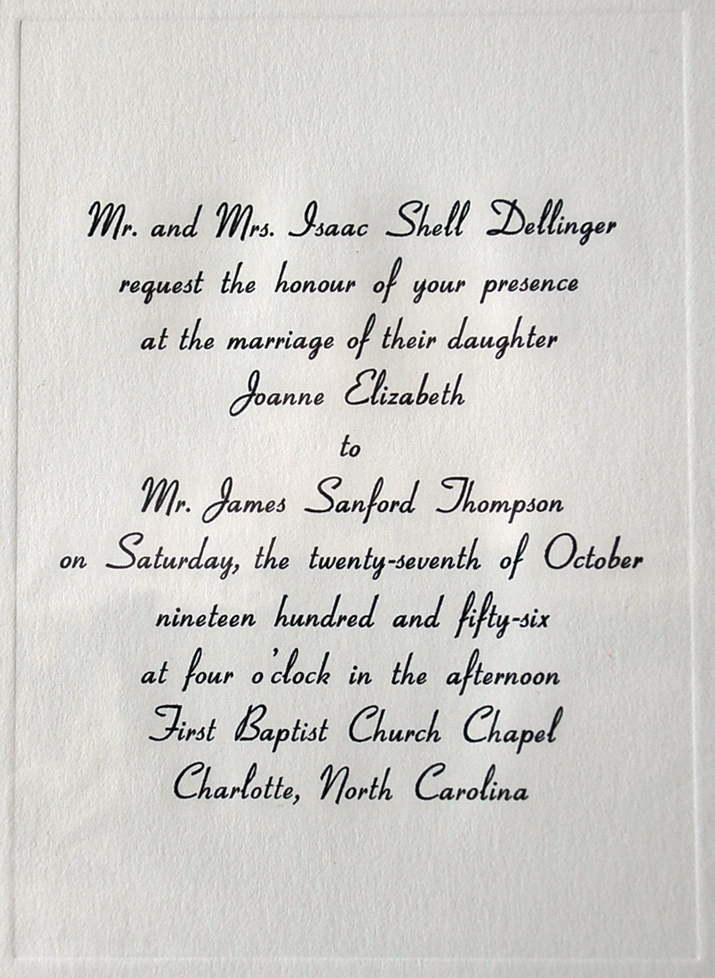 Mr. and Mrs. Isaac Shell Dellinger
request the honour of your presence
at the marriage of their daughter
Joanne Elizabeth
to
Mr. James Sanford Thompson
on Saturday, the twenty-seventh of October
nineteen hundred and fifty-six
at four o'clock in the afternoon
First Baptist Church Chapel
Charlotte, North Carolina